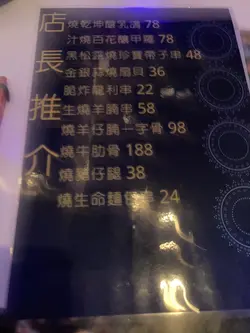 店長推介
燒乾坤釀乳鴿 78
汁燒百花釀甲羅 78
黑松露燒珍寶帶子串 48
金銀蒜燒扇貝 36
脆炸龍利串 22
生燒羊腩串 58
燒羊仔腩一字骨 98
燒牛肋骨 188
燒 仔腿 38
燒生命麵 24